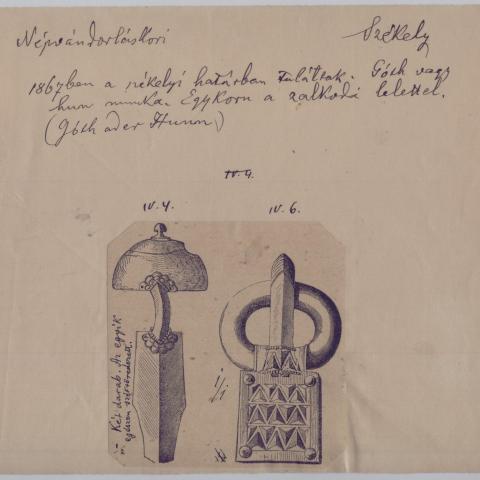 Népvándorláskori
Székely
1867ben a székelyi határban találtak. Góth vagy
hun munka. Egykorú a zalkodi lelettel.
(Góth oder Hunn)
IV. 4.
IV. 4.
IV. 6.
Két darab. Az egyik
egészen
1/1